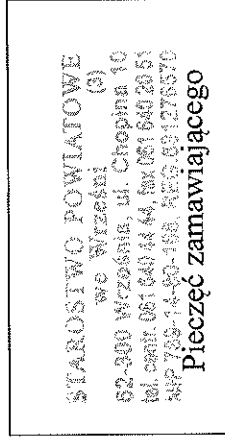 STAROSTWO POWIATOWE
we Wrześni (3)
62-300 Września, ul. Chopina 10
tel. cent. 061 640 44 44, fax 061 640 20 51
NIP 789-14-90-
Pieczęć zamawiającego